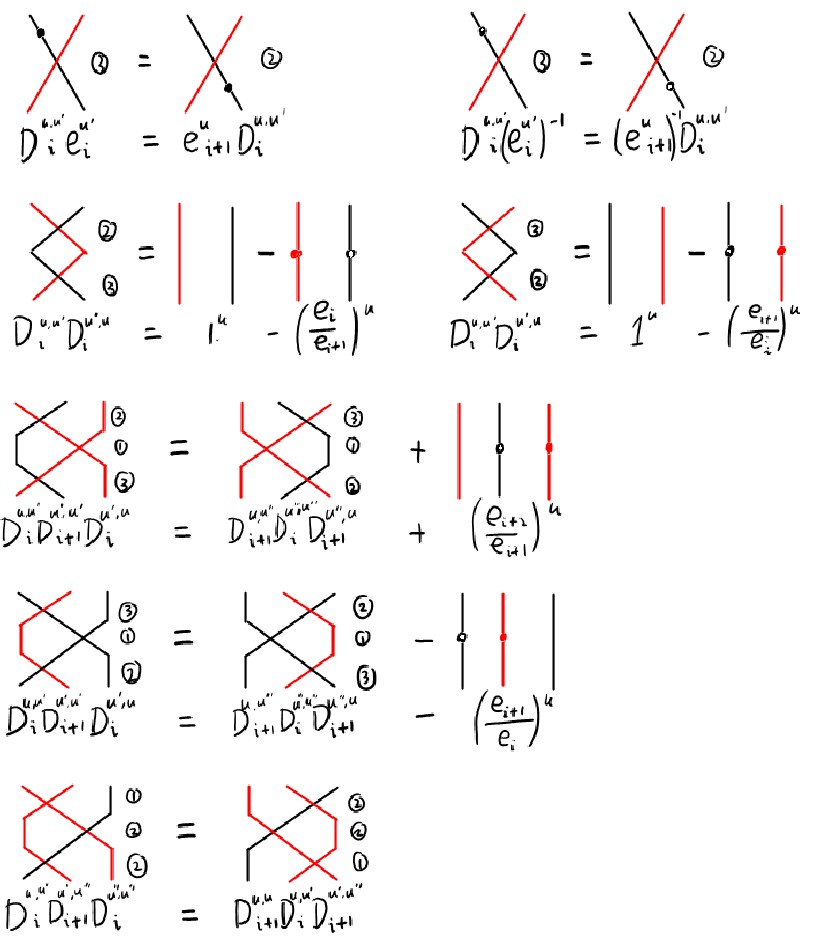 ③ = ② ③ = ②
D_i^{u,u'} e_i^{u'} = e_{i+1}^u D_i^{u,u'} D_i^{u,u'} (e_i^{u'})^{-1} = (e_{i+1}^u)^{-1} D_i^{u,u'}
② = - ③ = -
③ ②
D_i^{u,u'} D_i^{u',u} = 1^u - (e_i/e_{i+1})^u D_i^{u,u'} D_i^{u',u} = 1^u - (e_{i+1}/e_i)^u
② ③
① = ① +
③ ②
D_i^{u,u'} D_{i+1}^{u',u'} D_i^{u',u} = D_{i+1}^{u,u''} D_i^{u'',u''} D_{i+1}^{u'',u} + (e_{i+2}/e_{i+1})^u
③ ②
① = ① -
② ③
D_i^{u,u'} D_{i+1}^{u',u'} D_i^{u',u} = D_{i+1}^{u,u''} D_i^{u'',u''} D_{i+1}^{u'',u} - (e_{i+1}/e_i)^u
① ②
② = ②
② ①
D_i^{u,u'} D_{i+1}^{u',u''} D_i^{u'',u''} = D_{i+1}^{u,u} D_i^{u,u'} D_{i+1}^{u',u''}